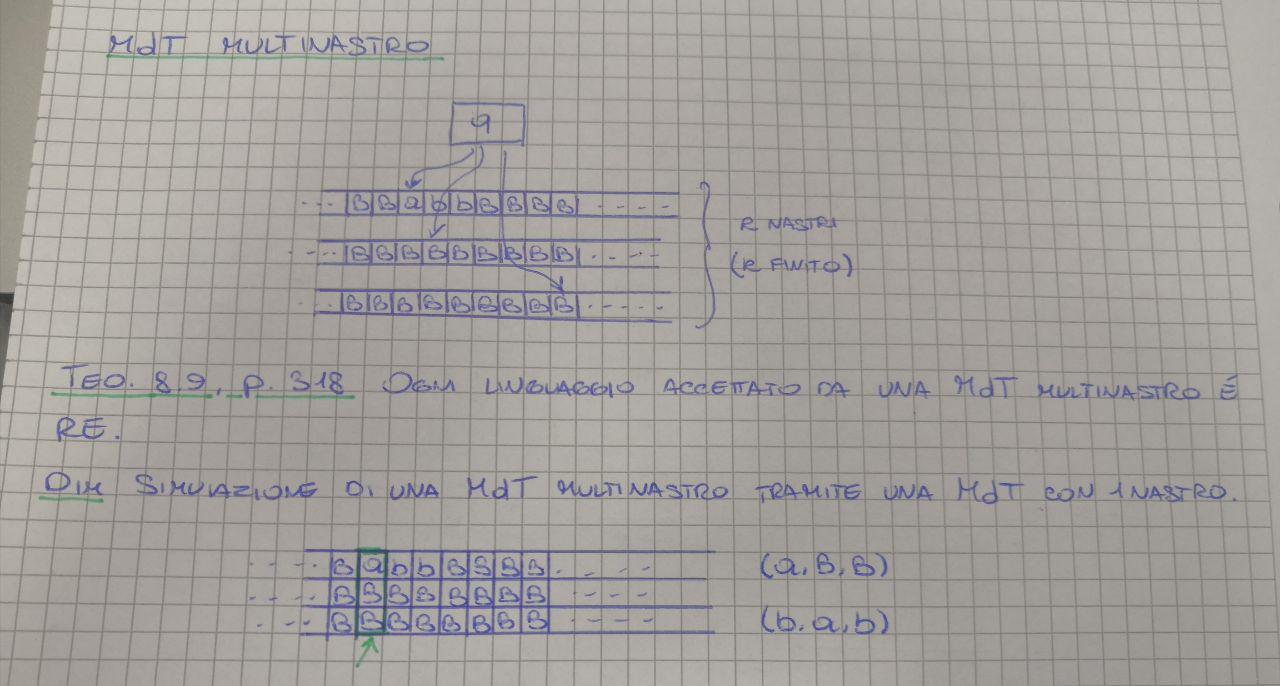 MdT MULTINASTRO
q
... B B a b b B B B B ....
R NASTRI
... B B B B B B B B B ....
(R FINITO)
... B B B B B B B B B ....
TEO. 8.9, P. 318 OGNI LINGUAGGIO ACCETTATO DA UNA MdT MULTINASTRO É
RE.
DIM SIMULAZIONE DI UNA MdT MULTINASTRO TRAMITE UNA MdT CON 1 NASTRO.
.... B a b b B B B B .... (a, B, B)
.... B B B B B B B B ....
.... B B B B B B B B .... (b, a, b)